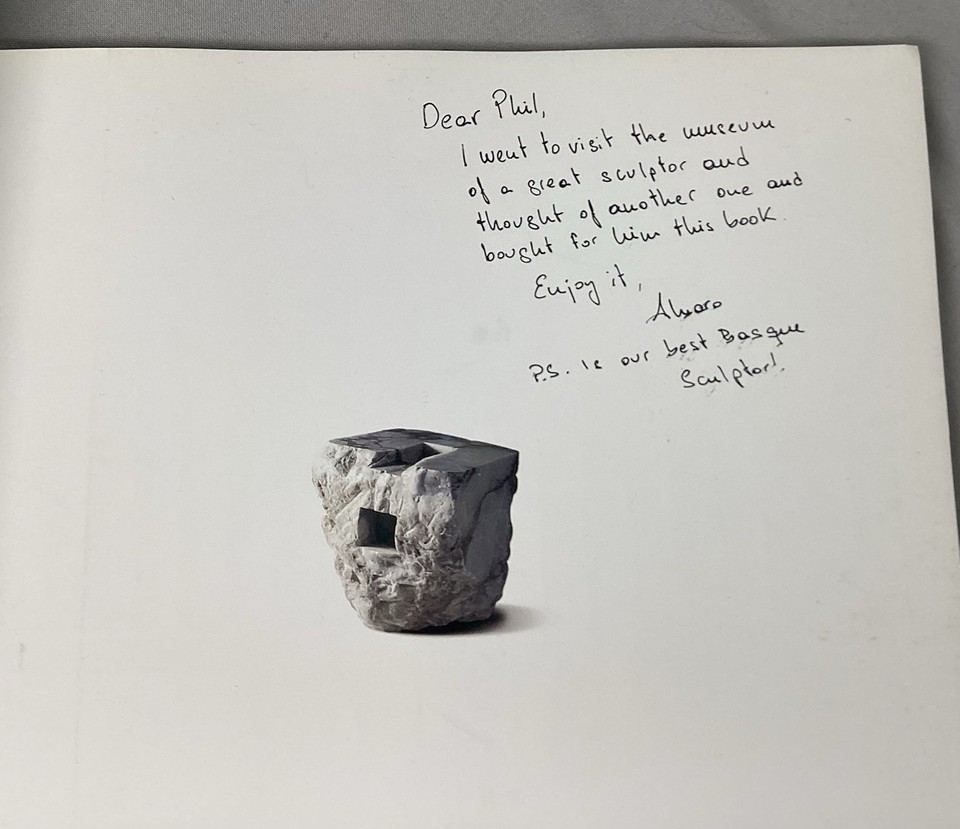 Dear Phil,
I went to visit the museum
of a great sculptor and
thought of another one and
bought for him this book.
Enjoy it,
Alvaro
P.S. Is our best Basque
Sculptor!